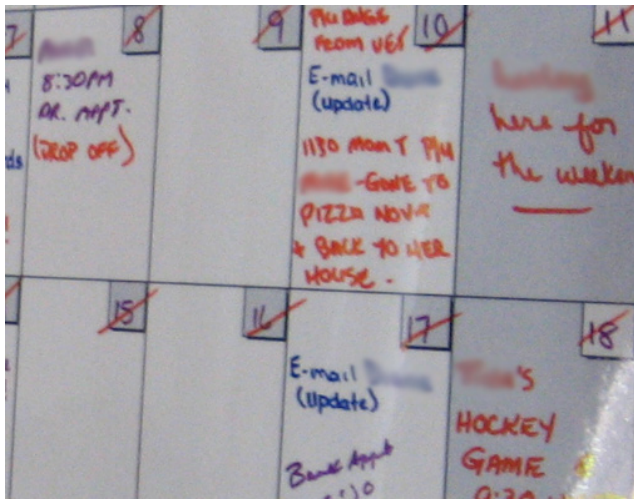 7
8
8:30PM
DR. APPT.
(DROP OFF)
ds
9
10
P/U DOGS
FROM VET
E-mail
(update)
1130 MOM T P/U
-GONE TO
PIZZA NOVA
+ BACK TO HER
HOUSE.
11
here for
the weeken
15
16
17
E-mail
(update)
Bank Appt
18
's
HOCKEY
GAME